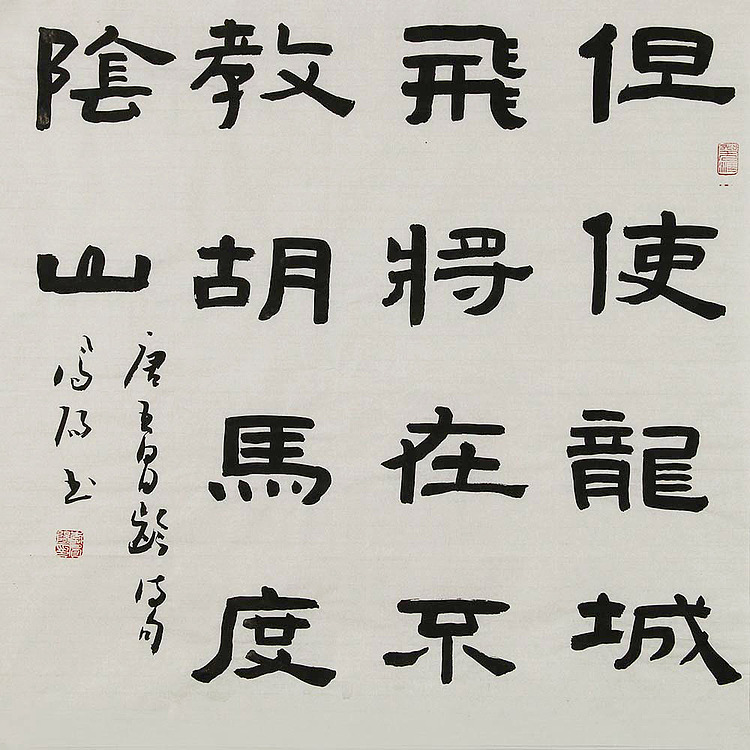 但使龍城
飛將在不
教胡馬度
陰山
唐王昌齡詩句